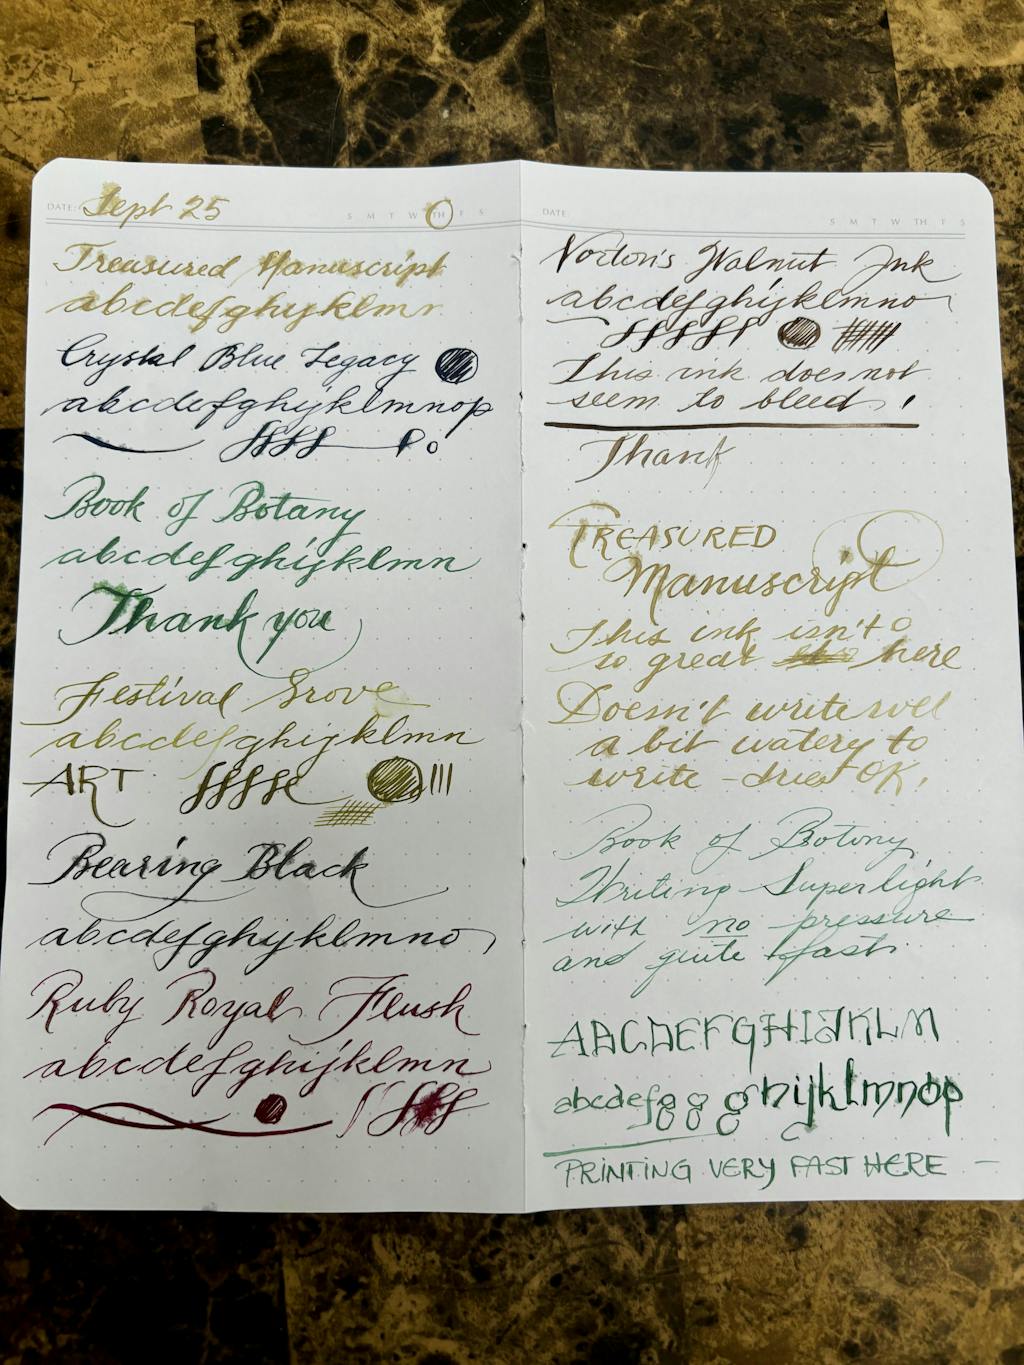 DATE: Sept 25
S M T W TH F S
Treasured Manuscript
abcdefghijklmn
Crystal Blue Legacy
abcdefghijklmnop
Book of Botany
abcdefghijklmn
Thank you
Festival Grove
abcdefghijklmn
ART
Bearing Black
abcdefghijklmno
Ruby Royal Flush
abcdefghijklmn
DATE:
S M T W TH F S
Norton's Walnut Ink
abcdefghijklmno
This ink does not
seem to bleed!
Thank
TREASURED
Manuscript
This ink isn't
so great here
Doesn't write well
a bit watery to
write - dries OK.
Book of Botony
Writing Super light
with no pressure
and quite fast
ABCDEFGHIJKLM
abcdefg g g ghijklmnop
PRINTING VERY FAST HERE -